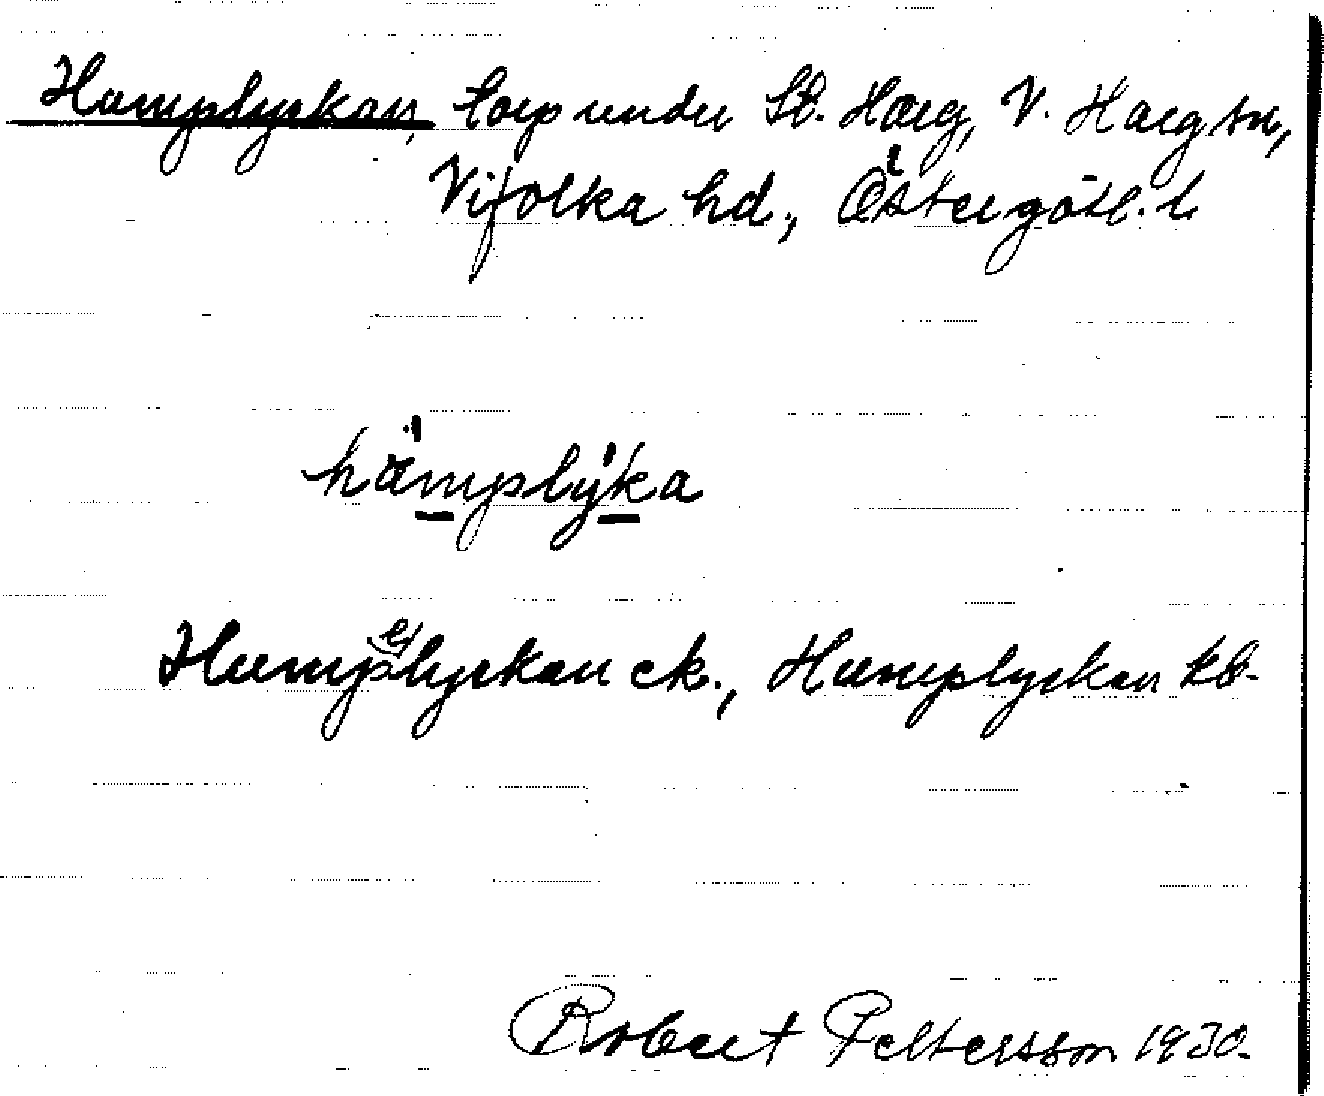 Hamplyckan, torp under St. Harg, V. Harg sn,
Vifolka hd., Östergötl. l.
hämplyka
Hamp(e)lyckan ek., Hamplyckan kb.
Robert Pettersson 1930.